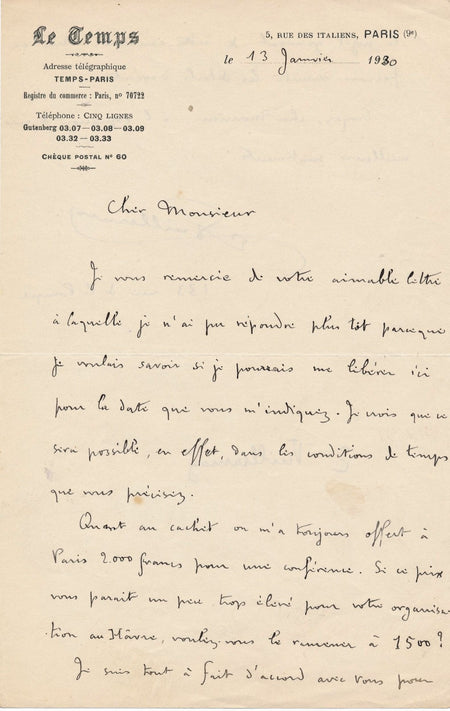 Le Temps
Adresse télégraphique
TEMPS-PARIS
Registre du commerce : Paris, nº 70722
Téléphone : CINQ LIGNES
Gutenberg 03.07 — 03.08 — 03.09
03.32 — 03.33
CHÈQUE POSTAL Nº 60
5, RUE DES ITALIENS, PARIS (9e)
le 13 Janvier 1930
Cher Monsieur
Je vous remercie de votre aimable lettre
à laquelle je n'ai pu répondre plus tôt parceque
je voulais savoir si je pourrais me libérer ici
pour la date que vous m'indiquez. Je crois que ce
sera possible, en effet, dans les conditions de temps
que vous précisez.
Quant au cachet on m'a toujours offert à
Paris 2.000 francs pour une conférence. Si ce prix
vous parait un peu trop élevé pour votre organisa-
-tion au Hâvre, voulez-vous le ramener à 1500?
Je suis tout à fait d'accord avec vous pour